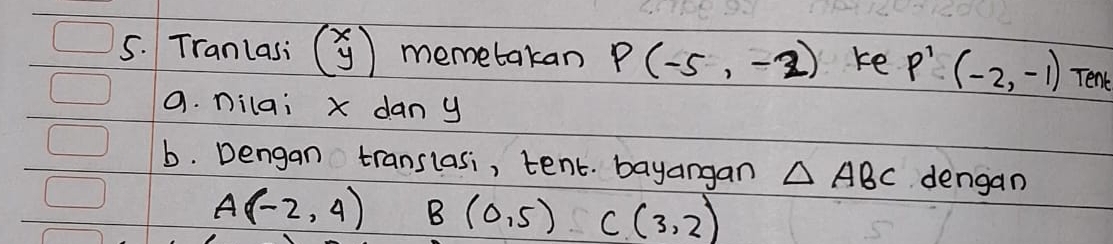 5. Tranlasi (x y) memetakan P (-5, -2) ke P' (-2, -1) Tent
a. nilai x dan y
b. Dengan translasi, tent. bayangan △ ABC dengan
A(-2, 4) B (0,5) C (3,2)